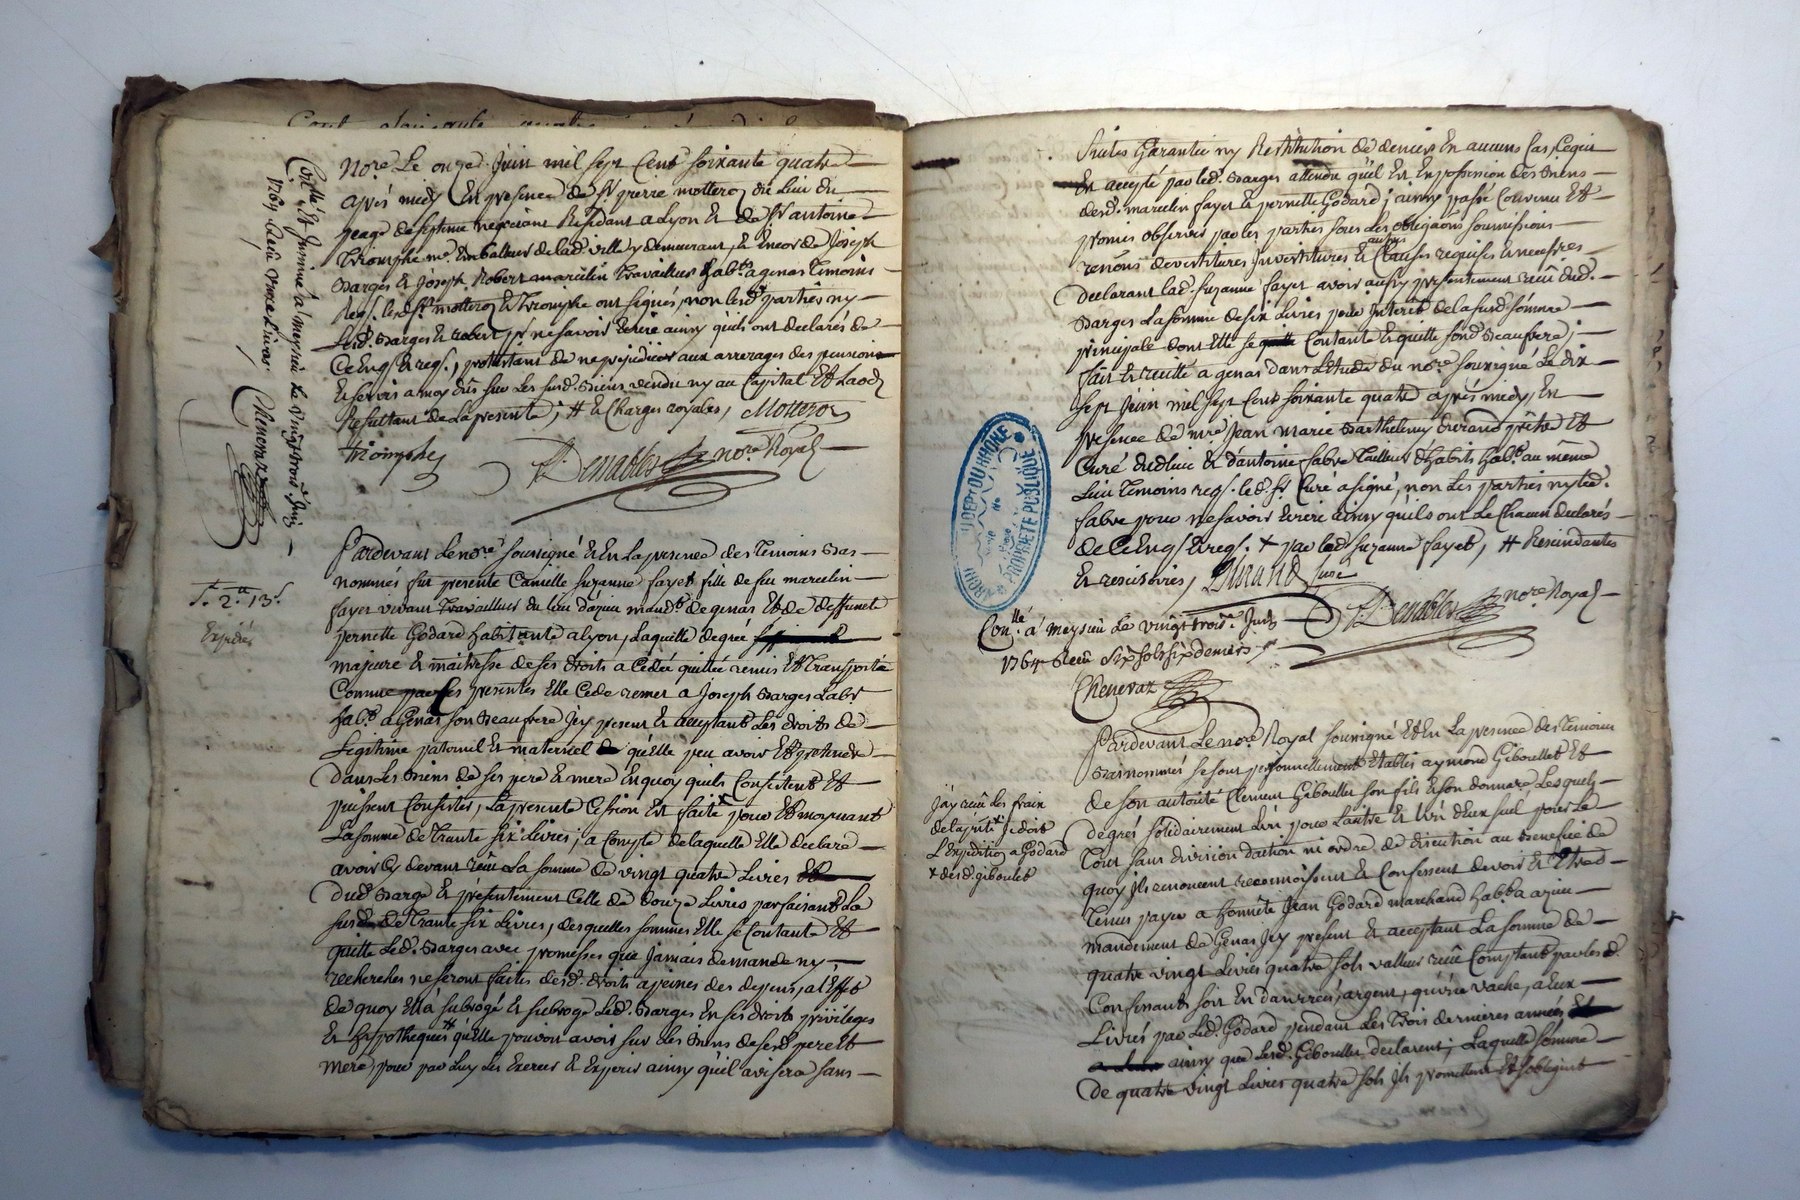 nore. Le onze Juin mil sept Cent soixante quatre
après midy En presence de Sr. pierre motteroz du lieu du
peage de septime negociant Residant a Lyon et de Sr antoine
triomphe me. Emballeur de lad. ville y demeurant, et Encor de Joseph
Barges et Joseph Robert marcelin travailleur habts. a genas temoins
Req. led. Sr. motteroz et triomphe ont signés, non lesd. parties ny
led. Barges et robert pr. ne scavoir Ecrire ainsy quils ont declarés de
Ce Enq. et req., protestant de ne prejudicier aux arrerages des pensions
et servis a moy dus sur Les susd. Biens vendu ny au Capital Et Laods
Resultant de La presente, # et Charges royales, Motteroz
triomphe
Denables nore Royal
Collé. Et Insinué a meyzieu Le vingttrois Juin
1764 Reçu
Chenevaz
Pardevant Le nore soussigné et En La presence des temoins Bas
nommés fut presente Camille Suzanne fayet fille de feu marcelin
fayet vivant travailleur du lieu d'azieu mandt. de genas Et de deffuncte
pernette Godard habitante a Lyon, Laquelle de gré
majeure et maitresse de ses droits a Cedée quittée remis Et transportée
Comme par les presentes Elle Cede remet a Joseph Barges Labr.
habt. a Genas son Beaufrere Icy present et acceptant Les droits de
Legitime paternel et maternel qu'Elle peu avoir Et pretendre
dans Les Biens de ses pere et mere En quoy quils Consistent Et
puissent Consister, La presente Cession Est faite pour Et moyenant
La somme de trante six Livres, a Compte de laquelle Elle declare
avoir Cy devant reçu La somme de vingt quatre Livres
dud. Barge et presentement Celle de douze Livres parfaisant La
susd. de trante six Livres, desquelles sommes Elle se Contante Et
quitte Led. Barges avec promesses que Jamais demande ny
recherches ne seront faites desd. droits a peines des depens, a l'Effet
de quoy Ell'a subrogé et subroge Led. Barges En ses droits privileges
et hypotheques # qu'Elle pouvoit avoir sur Les Biens de sesd. pere Et
mere pour par Luy Les Exercer et Experir ainsy qu'il avisera sans
f. 2. 13s.
Expediés
suites Garantie ny Restitution de deniers En aucuns Cas, Ce qui
Est accepté par led. Barges attendu qu'il Est En possession des Biens
desd. marcelin fayet et pernette Godard; ainsy passé Convenu Et
promis observer par les parties sous Les obligaôns soumissions
renôns devestitures Investitures et autres Clauses requises et necesres
declarant lad. suzanne fayet avoir aussy presentement reçu dud.
Barges La somme de six Livres pour Interet de La susd. somme
principale dont Elle se Contante et quitte sond. Beaufrere,
fait et recitté a genas dans L'Etude du nore. soussigné Le dix
sept Juin mil sept Cent soixante quatre après midy, En
presence de mre. Jean marie Barthelemy durand prêtre Et
Curé dud. lieu et d'antoine fabre tailleur d'habits habt. au même
Lieu temoins req. led. Sr. Curé a signé, non Les parties ny led.
fabre pour ne scavoir Ecrire ainsy qu'ils ont Le Chacun declarés
de Ce Enq. et req. + par lad. suzanne fayet, # Rescindantes
et rescisoires, Durand Curé
Denables nore Royal
ARCH. DU DEPT DU RHÔNE
PROPRIÉTÉ PUBLIQUE
Conllé. a meyzieu Le vingt trois. Juin
1764 Reçu six sols six deniers
Chenevaz
Pardevant Le nore Royal soussigné Et En La presence des temoins
Bas nommés se sont personnellement Etablis aymond Giboullet Et
de son autorité Clement Giboullet son fils et son donnaire Lesquels
de grés solidairement L'un pour L'autre et L'un d'Eux seul pour Le
tout sans division d'action ni ordre de discution au Benefice de
quoy Ils renoncent reconnoissent et Confessent devoir Et
tenus payer a honnête Jean Godard marchand habt. a azieu
mandement de Genas Icy present et acceptant La somme de
quatre vingt Livres quatre sols valleur reçue Comptant par lesd.
Consistants soit En danrrées, argent, vache, a Eux
Livrés par Led. Godard pendant Les trois dernieres années
ainsy que Lesd. Giboullet declarent; Laquelle somme
de quatre vingt Livres quatre sols Ils promettent Et s'obligent
J'ay reçu Les frais
de la pnte. Je dois
L'Expedition a Godard
+ desd. giboulet